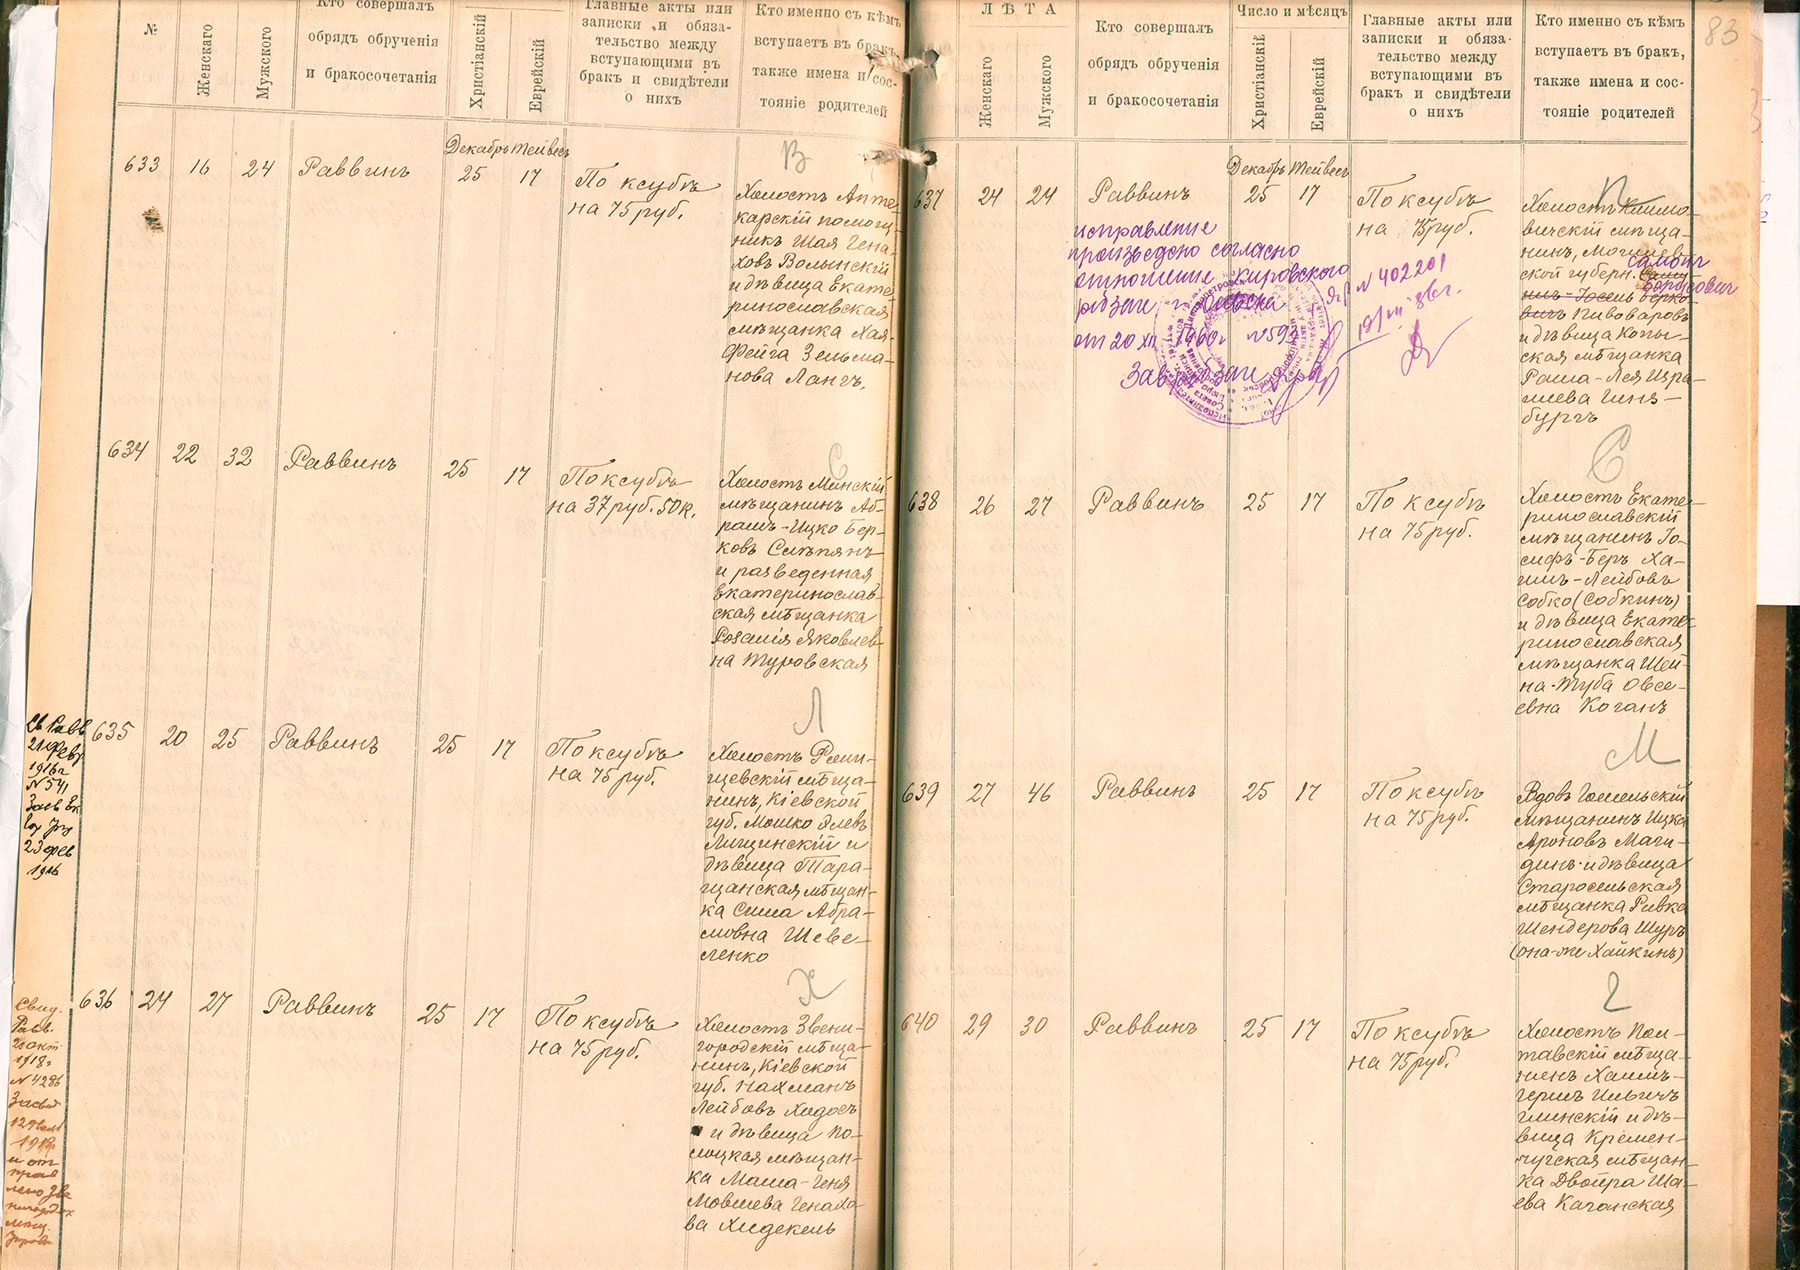 №
Женскаго
Мужского
Кто совершалъ
обрядъ обрученія
и бракосочетанія
Христіанскій
Еврейскій
Главные акты или
записки и обяза-
тельство между
вступающими въ
бракъ и свидѣтели
о нихъ
Кто именно съ кѣмъ
вступаетъ въ бракъ,
также имена и сос-
тояніе родителей
Декабрь Тейвесъ
633 16 24 Раввинъ 25 17
По ксубѣ
на 75 руб.
В
Холостъ Апте-
карскій помощ-
никъ Шая Гена-
ховъ Волынскій
и дѣвица Екате-
ринославская
мѣщанка Хая-
Фейга Зельма-
нова Лангъ.
634 22 32 Раввинъ 25 17
По ксубѣ
на 37 руб. 50 к.
С
Холостъ Минскій
мѣщанинъ Аб-
рамъ-Ицко Бер-
ковъ Слѣпянъ
и разведенная
Екатеринослав-
ская мѣщанка
Розалія Яковлев-
на Туровская
Св Равв
21 Февр
1916 г
N 541
23 фев
1916
635 20 25 Раввинъ 25 17
По ксубѣ
на 75 руб.
Л
мѣща-
нинъ, Кіевской
губ. Мошко Элевъ
Лищинскій и
дѣвица Тара-
щанская мѣщан-
ка Сима Абра-
мовна Шеве-
ленко
Свид.
Равв.
1918 г
N 4286
636 24 27 Раввинъ 25 17
По ксубѣ
на 75 руб.
Х
Холостъ Звени-
городскій мѣща-
нинъ, Кіевской
губ. Нахманъ
Лейбовъ Ходосъ
и дѣвица По-
лоцкая мѣщан-
ка Маша-Геня
Мовшева Генахо-
ва Хидекель
83
ЛѢТА
Женскаго
Мужского
Кто совершалъ
обрядъ обрученія
и бракосочетанія
Число и мѣсяцъ
Христіанскій
Еврейскій
Главные акты или
записки и обяза-
тельство между
вступающими въ
бракъ и свидѣтели
о нихъ
Кто именно съ кѣмъ
вступаетъ въ бракъ,
также имена и сос-
тояніе родителей
Декабрь Тейвесъ
637 24 24 Раввинъ 25 17
По ксубѣ
на 75 руб.
П
Холостъ Климо-
вичскій мѣща-
нинъ, Могилев-
ской губерн.
Борисович
Пивоваровъ
и дѣвица Копы-
ская мѣщанка
Раша-Лея Изра-
илева Гинз-
бургъ
исправление
произведено согласно
отношение Кировского
от 20 XII 1960 г N 593
N 402201
638 26 27 Раввинъ 25 17
По ксубѣ
на 75 руб.
С
Холостъ Екате-
ринославскій
мѣщанинъ Іо-
сифъ-Беръ Ха-
имъ-Лейбовъ
Собко (Собкинъ)
и дѣвица Екате-
ринославская
мѣщанка Шей-
на-Туба Овсе-
евна Коганъ
639 27 46 Раввинъ 25 17
По ксубѣ
на 75 руб.
М
Вдовъ Гомельскій
мѣщанинъ Ицка
Ароновъ Маги-
динъ и дѣвица
Старосельская
мѣщанка Ривка
Шендерова Шуръ
(она-же Хайкинъ)
640 29 30 Раввинъ 25 17
По ксубѣ
на 75 руб.
Г
Холостъ Пол-
тавскій мѣща-
нинъ Хаимъ-
Гершъ Ильичъ
Глинскій и дѣ-
вица Кремен-
чугская мѣщан-
ка Двойра Ша-
ева Каганская